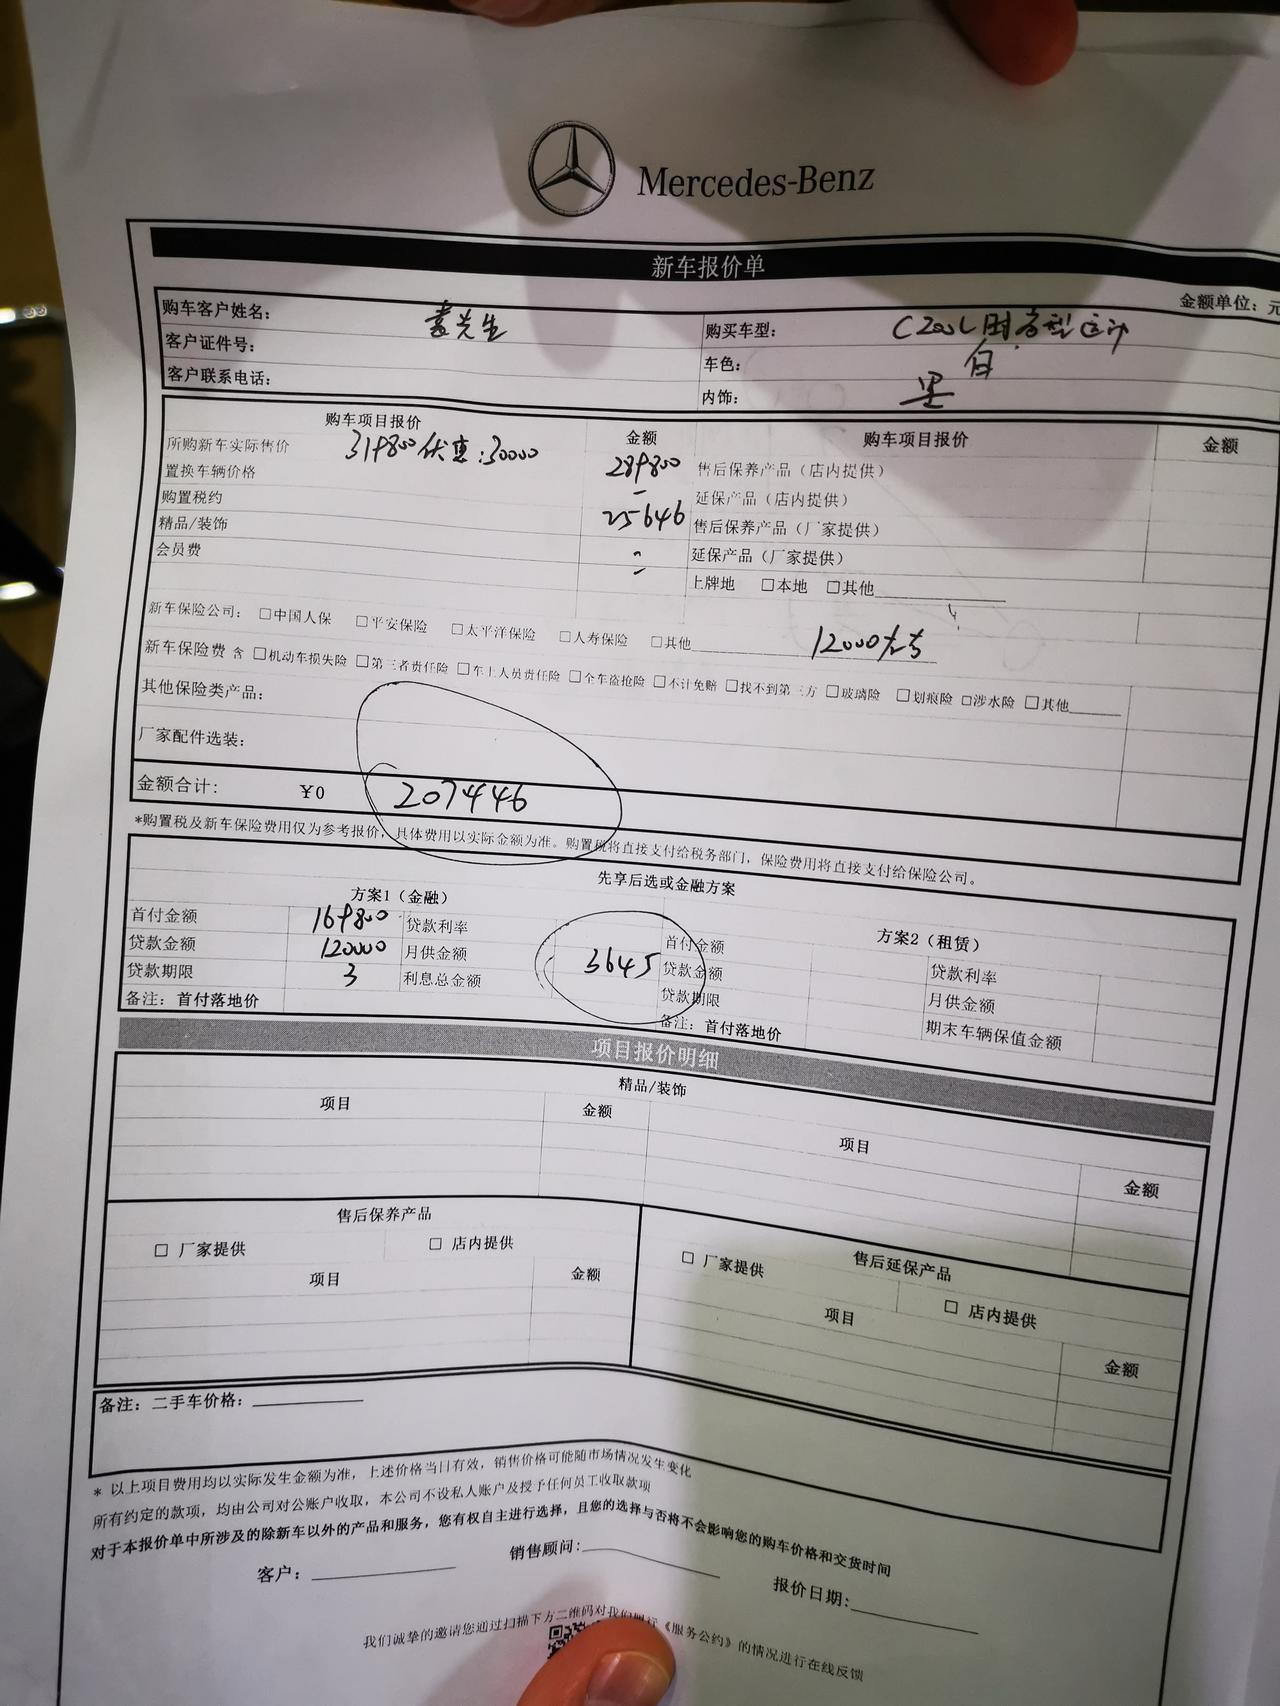 Mercedes-Benz
新车报价单
金额单位：元
购车客户姓名： 先生
客户证件号：
客户联系电话：
购买车型： C200L时尚型运动
车色： 白
内饰： 黑
购车项目报价 金额 购车项目报价 金额
所购新车实际售价 319800优惠:30000 289800 售后保养产品（店内提供）
置换车辆价格 - 延保产品（店内提供）
购置税约 25646 售后保养产品（厂家提供）
精品/装饰 - 延保产品（厂家提供）
会员费 - 上牌地 □本地 □其他
新车保险公司： □中国人保 □平安保险 □太平洋保险 □人寿保险 □其他 12000左右
新车保险费 含 □机动车损失险 □第三者责任险 □车上人员责任险 □全车盗抢险 □不计免赔 □找不到第三方 □玻璃险 □划痕险 □涉水险 □其他
其他保险类产品：
厂家配件选装：
金额合计： ¥0 207446
*购置税及新车保险费用仅为参考报价，具体费用以实际金额为准。购置税将直接支付给税务部门，保险费用将直接支付给保险公司。
先享后选或金融方案
方案1（金融） 方案2（租赁）
首付金额 169800 贷款利率 首付金额 贷款利率
贷款金额 120000 月供金额 3645 贷款金额 月供金额
贷款期限 3 利息总金额 贷款期限 期末车辆保值金额
备注：首付落地价 备注：首付落地价
项目报价明细
精品/装饰
项目 金额 项目 金额
售后保养产品 售后延保产品
□ 厂家提供 □ 店内提供 □ 厂家提供 □ 店内提供
项目 金额 项目 金额
备注：二手车价格：
* 以上项目费用均以实际发生金额为准，上述价格当日有效，销售价格可能随市场情况发生变化
所有约定的款项，均由公司对公账户收取，本公司不设私人账户及授予任何员工收取款项
对于本报价单中所涉及的除新车以外的产品和服务，您有权自主进行选择，且您的选择与否将不会影响您的购车价格和交货时间
客户： 销售顾问： 报价日期：
我们诚挚的邀请您通过扫描下方二维码对我们履行《服务公约》的情况进行在线反馈